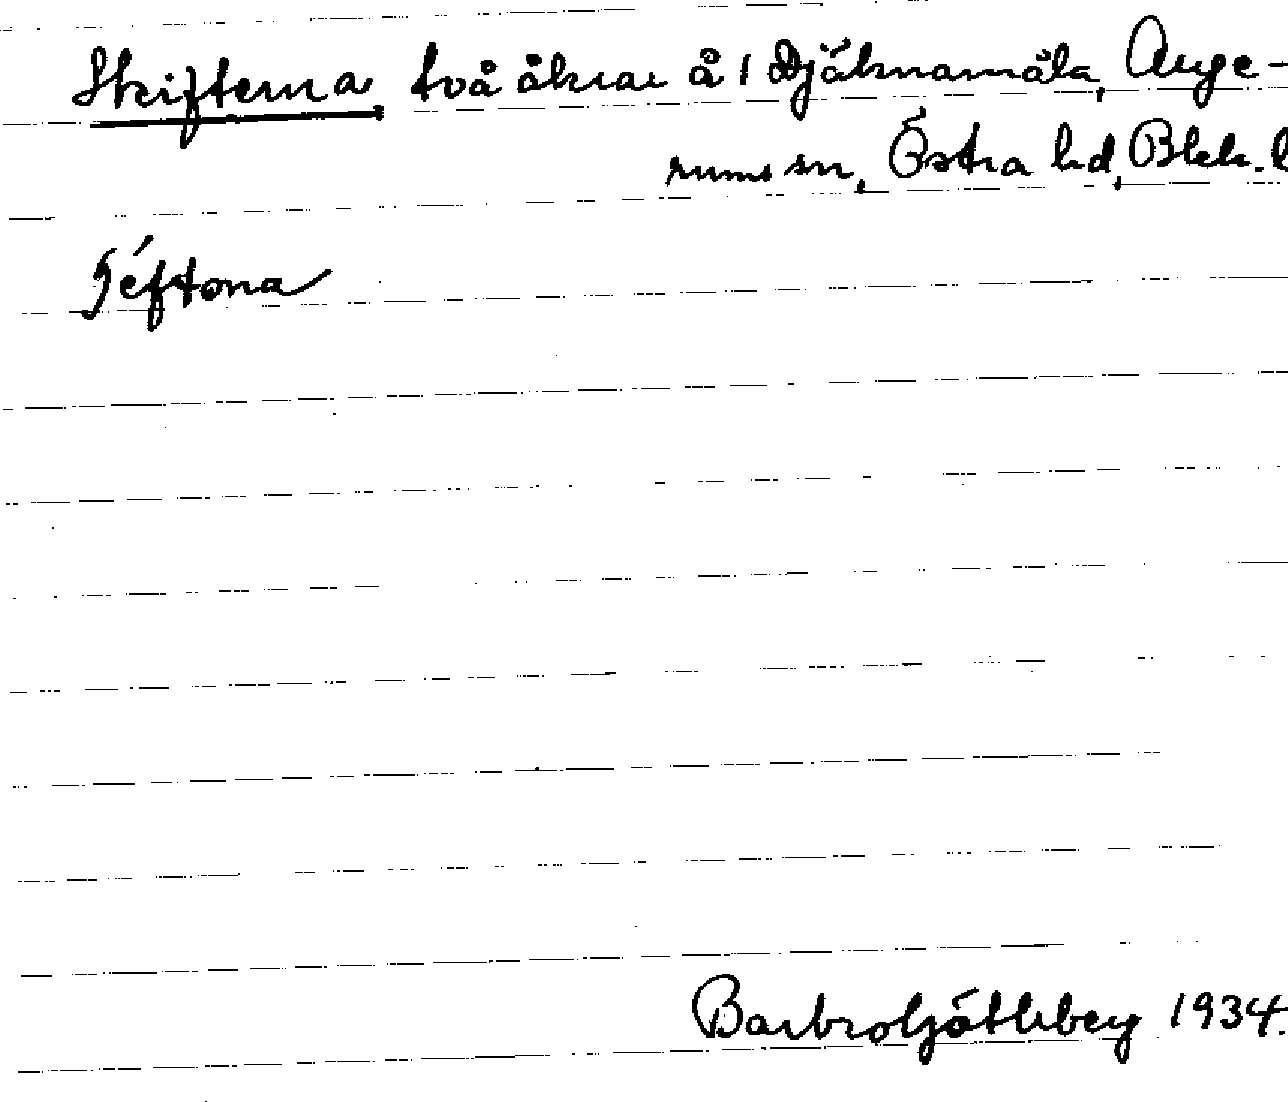 Skifterna, två åkrar å 1 Djäknamåla, Auge-
rums sn, Östra hd, Blek. l
Barbro Götleberg 1934.